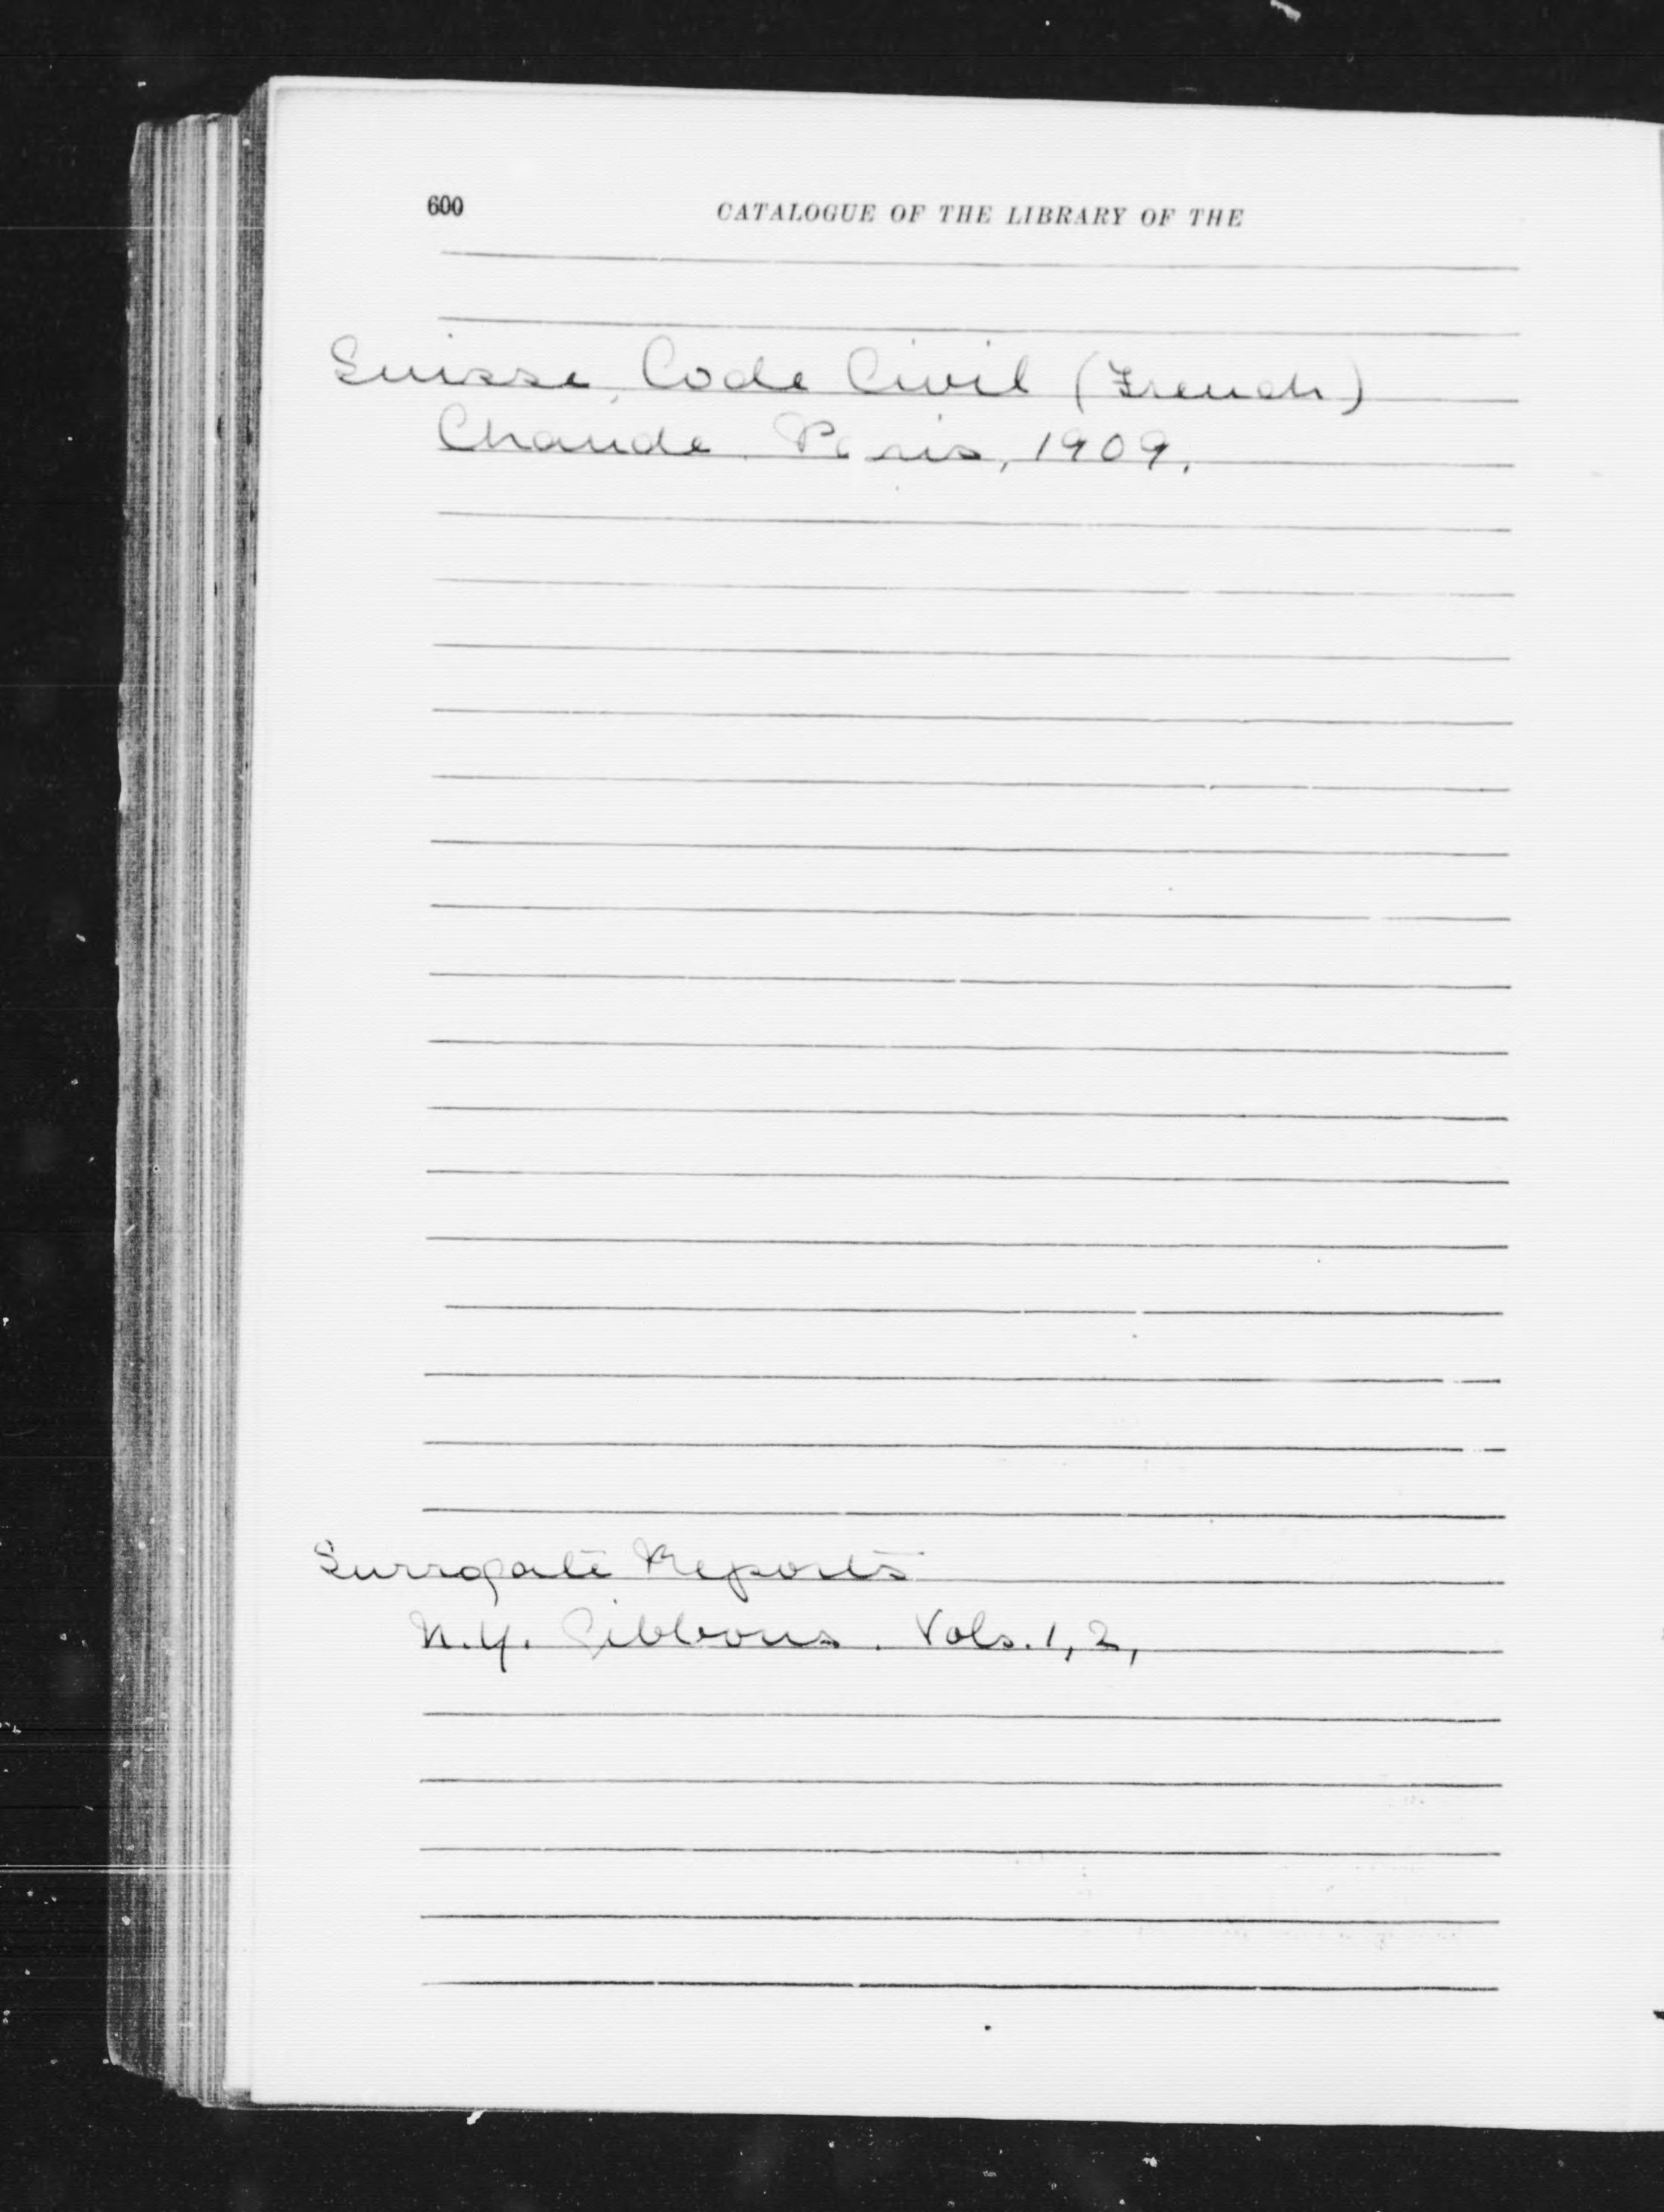 600 CATALOGUE OF THE LIBRARY OF THE
Suisse, Code Civil (French)
Chaude. Paris, 1909.
Surrogate Reports
N.Y. Gibbons. Vols. 1, 2,